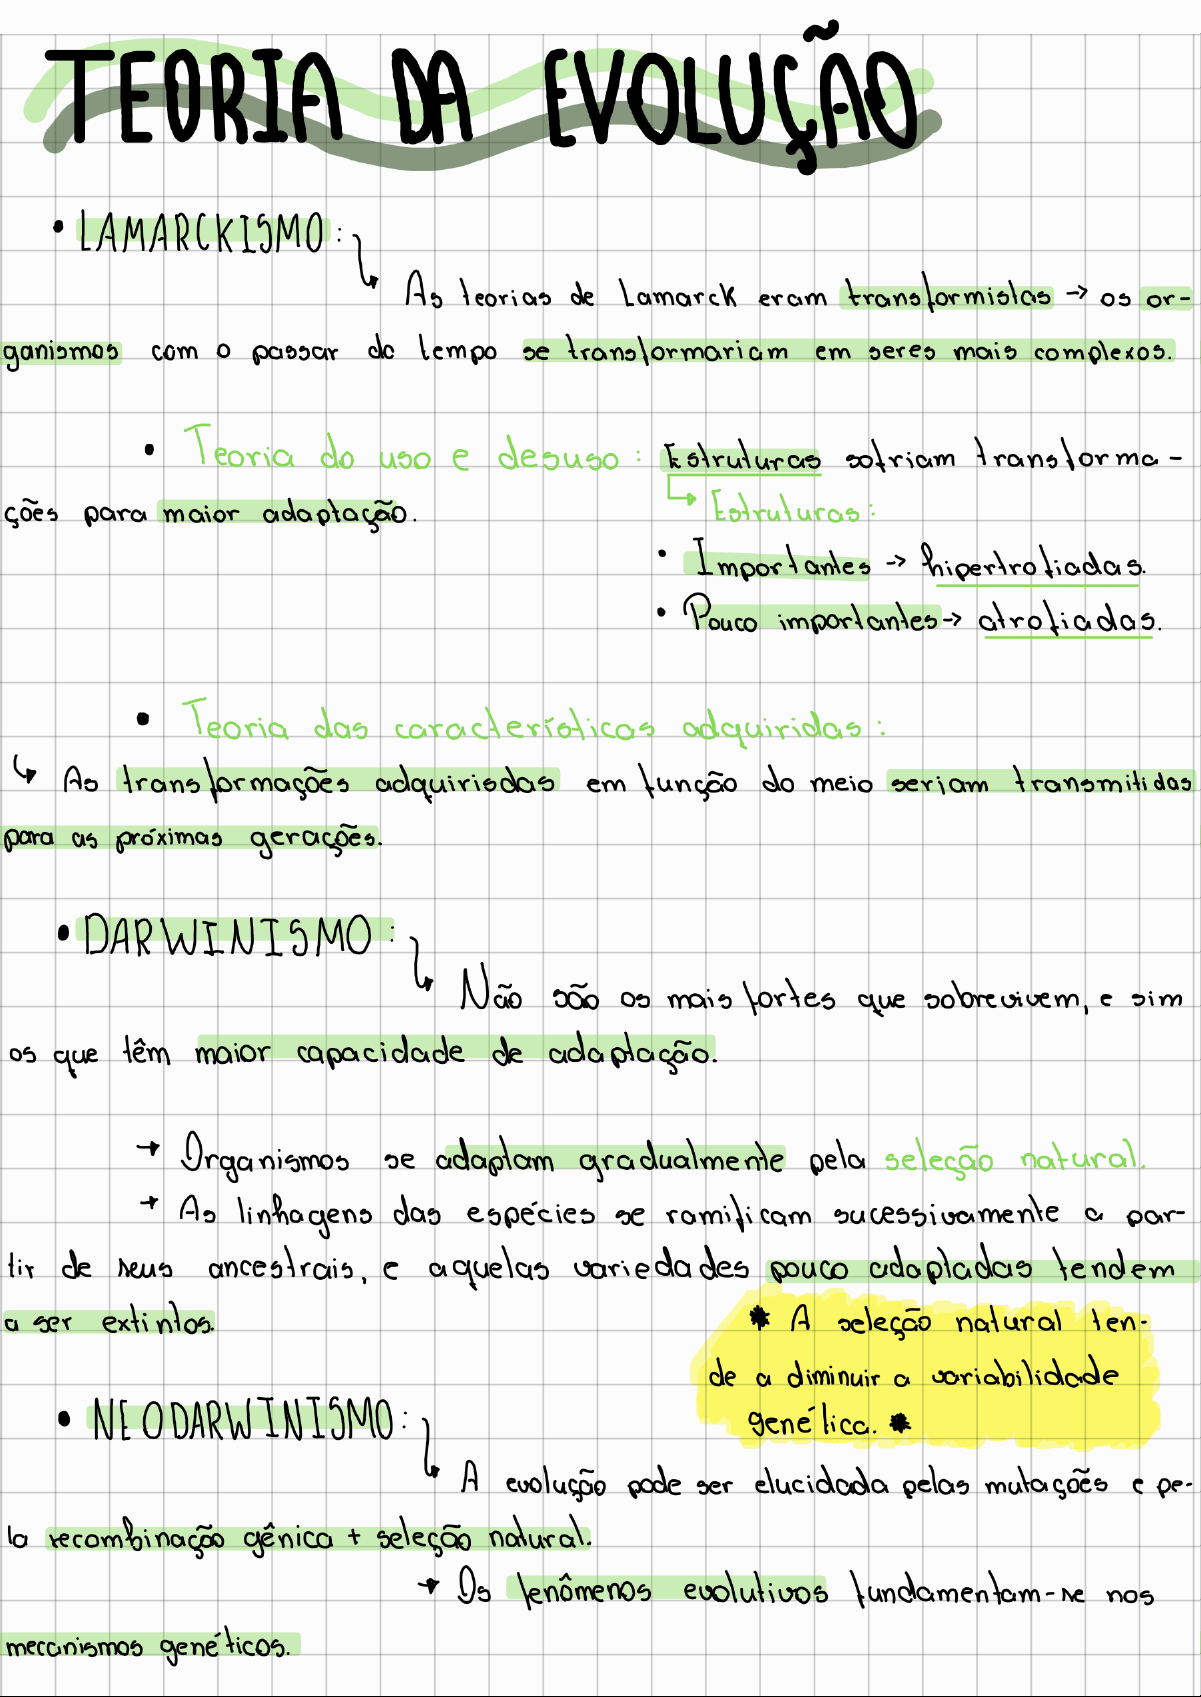 TEORIA DA EVOLUÇÃO
• LAMARCKISMO:
As teorias de Lamarck eram transformistas → os or-
ganismos com o passar do tempo se transformariam em seres mais complexos.
• Teoria do uso e desuso: Estruturas sofriam transforma-
ções para maior adaptação.
Estruturas:
• Importantes → hipertrofiadas.
• Pouco importantes → atrofiadas.
• Teoria das características adquiridas:
As transformações adquirisdas em função do meio seriam transmitidas
para as próximas gerações.
• DARWINISMO:
Não são os mais fortes que sobrevivem, e sim
os que têm maior capacidade de adaptação.
→ Organismos se adaptam gradualmente pela seleção natural.
→ As linhagens das espécies se ramificam sucessivamente a par-
tir de seus ancestrais, e aquelas variedades pouco adaptadas tendem
a ser extintos.
* A seleção natural ten-
de a diminuir a variabilidade
genética. *
• NEODARWINISMO:
A evolução pode ser elucidada pelas mutações e pe-
la recombinação gênica + seleção natural.
→ Os fenômenos evolutivos fundamentam-se nos
mecanismos genéticos.